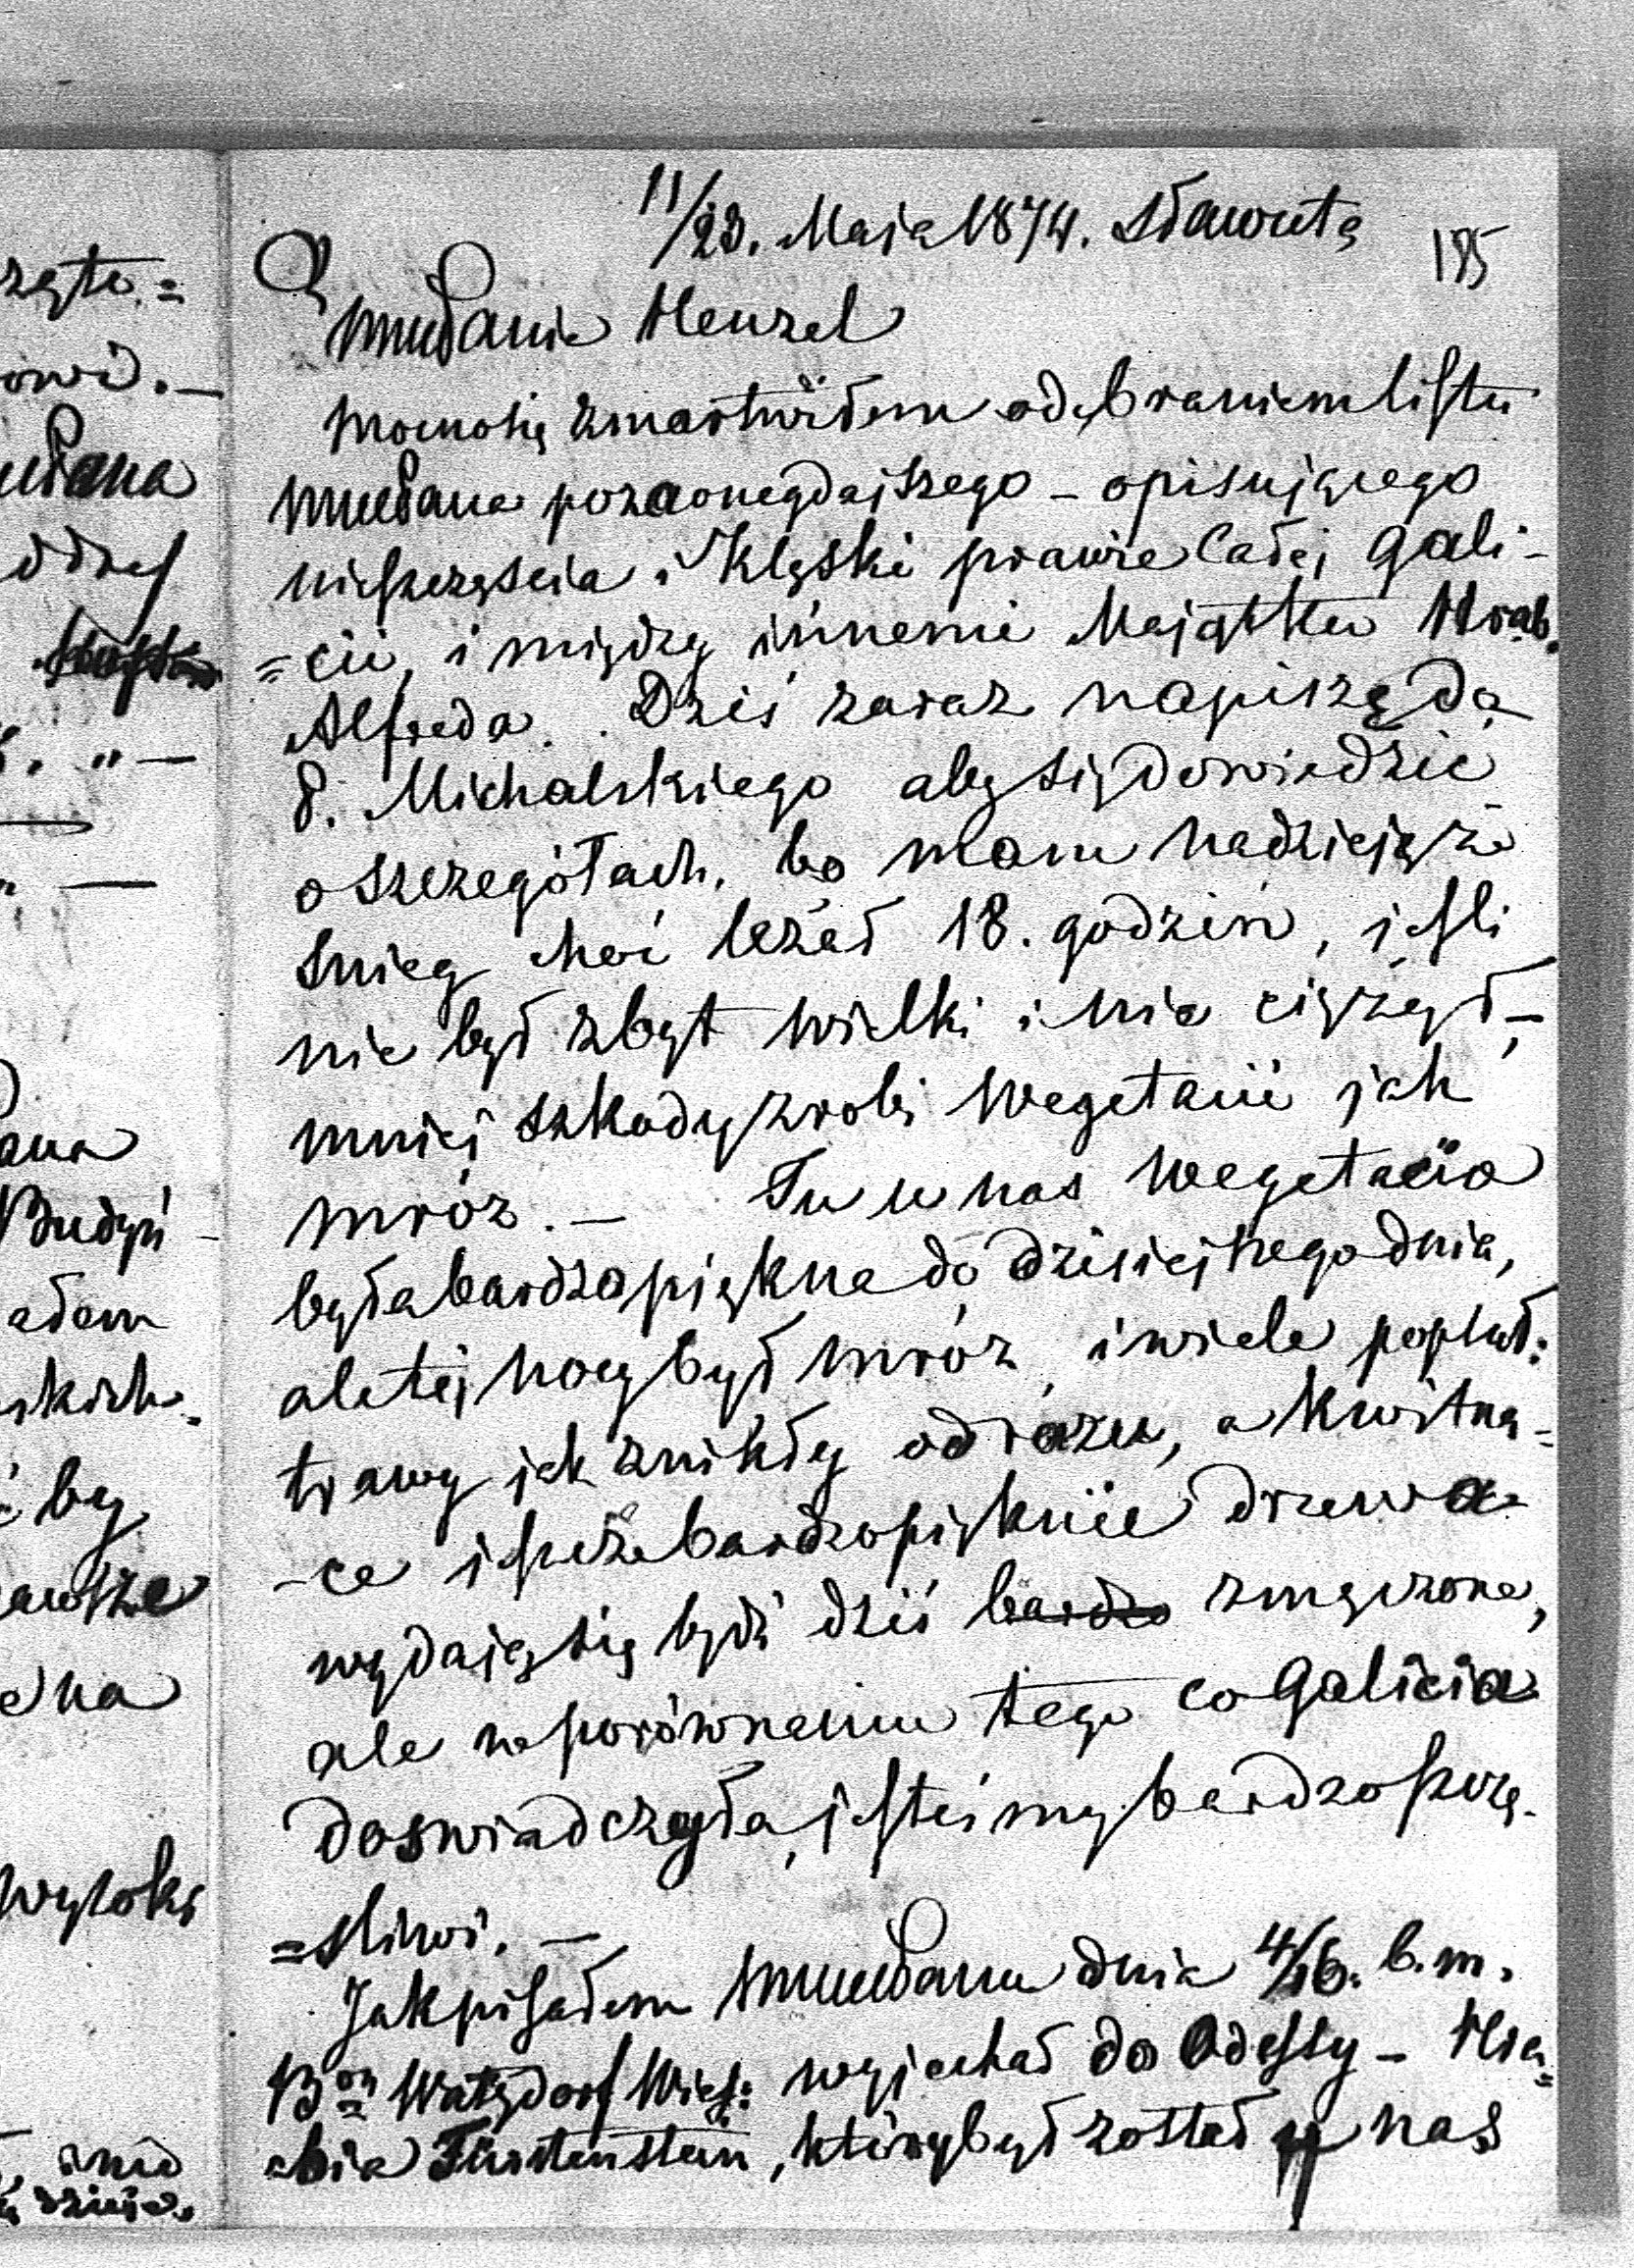 11/23. Maja 1874. Sławuta
195
Mnie Panie Henzel
Mocno się zmartwiłem odebraniem listu
Pana pozaonegdajszego – opisującego
nieszczęścia i Klęski prawie Całéj Gali-
=cii, i między innemi Majątku Hrab.
Alfreda. Dziś zaraz napiszę do
P. Michalskiego aby się dowiedzić
o szczegółach, bo mam nadzieję że
śnieg choć leżał 18. godzin, jeśli
nie był zbyt wielki i nie ciężył –,
mniéj szkody zrobi Wegetacii jak
mróz. – Tu u nas Wegetacïa
była bardzo piękna do dzisiejszego dnia,
ale téj nocy był mróz, i wiele
trawy jak znikły od razu, a Kwitną-
-ce jeszcze bardzo pięknie drzewa
wydają się bydź dziś bardzo zmęczone,
ale w porównaniu tego co Galicia
doswiadczyła, jesteśmy bardzo szczę-
=śliwi. –
Jak pisałem Panu dnia 4/16. b. m.
Bon Watzdorf Wies: wyjechał do Odessy – Hra=
=bia Fürstenstein, który był został u nas
zęto.=
owi. –
Pana
" –
ana
Budyń
ałem
skich.
by
awsze
na
wysoki